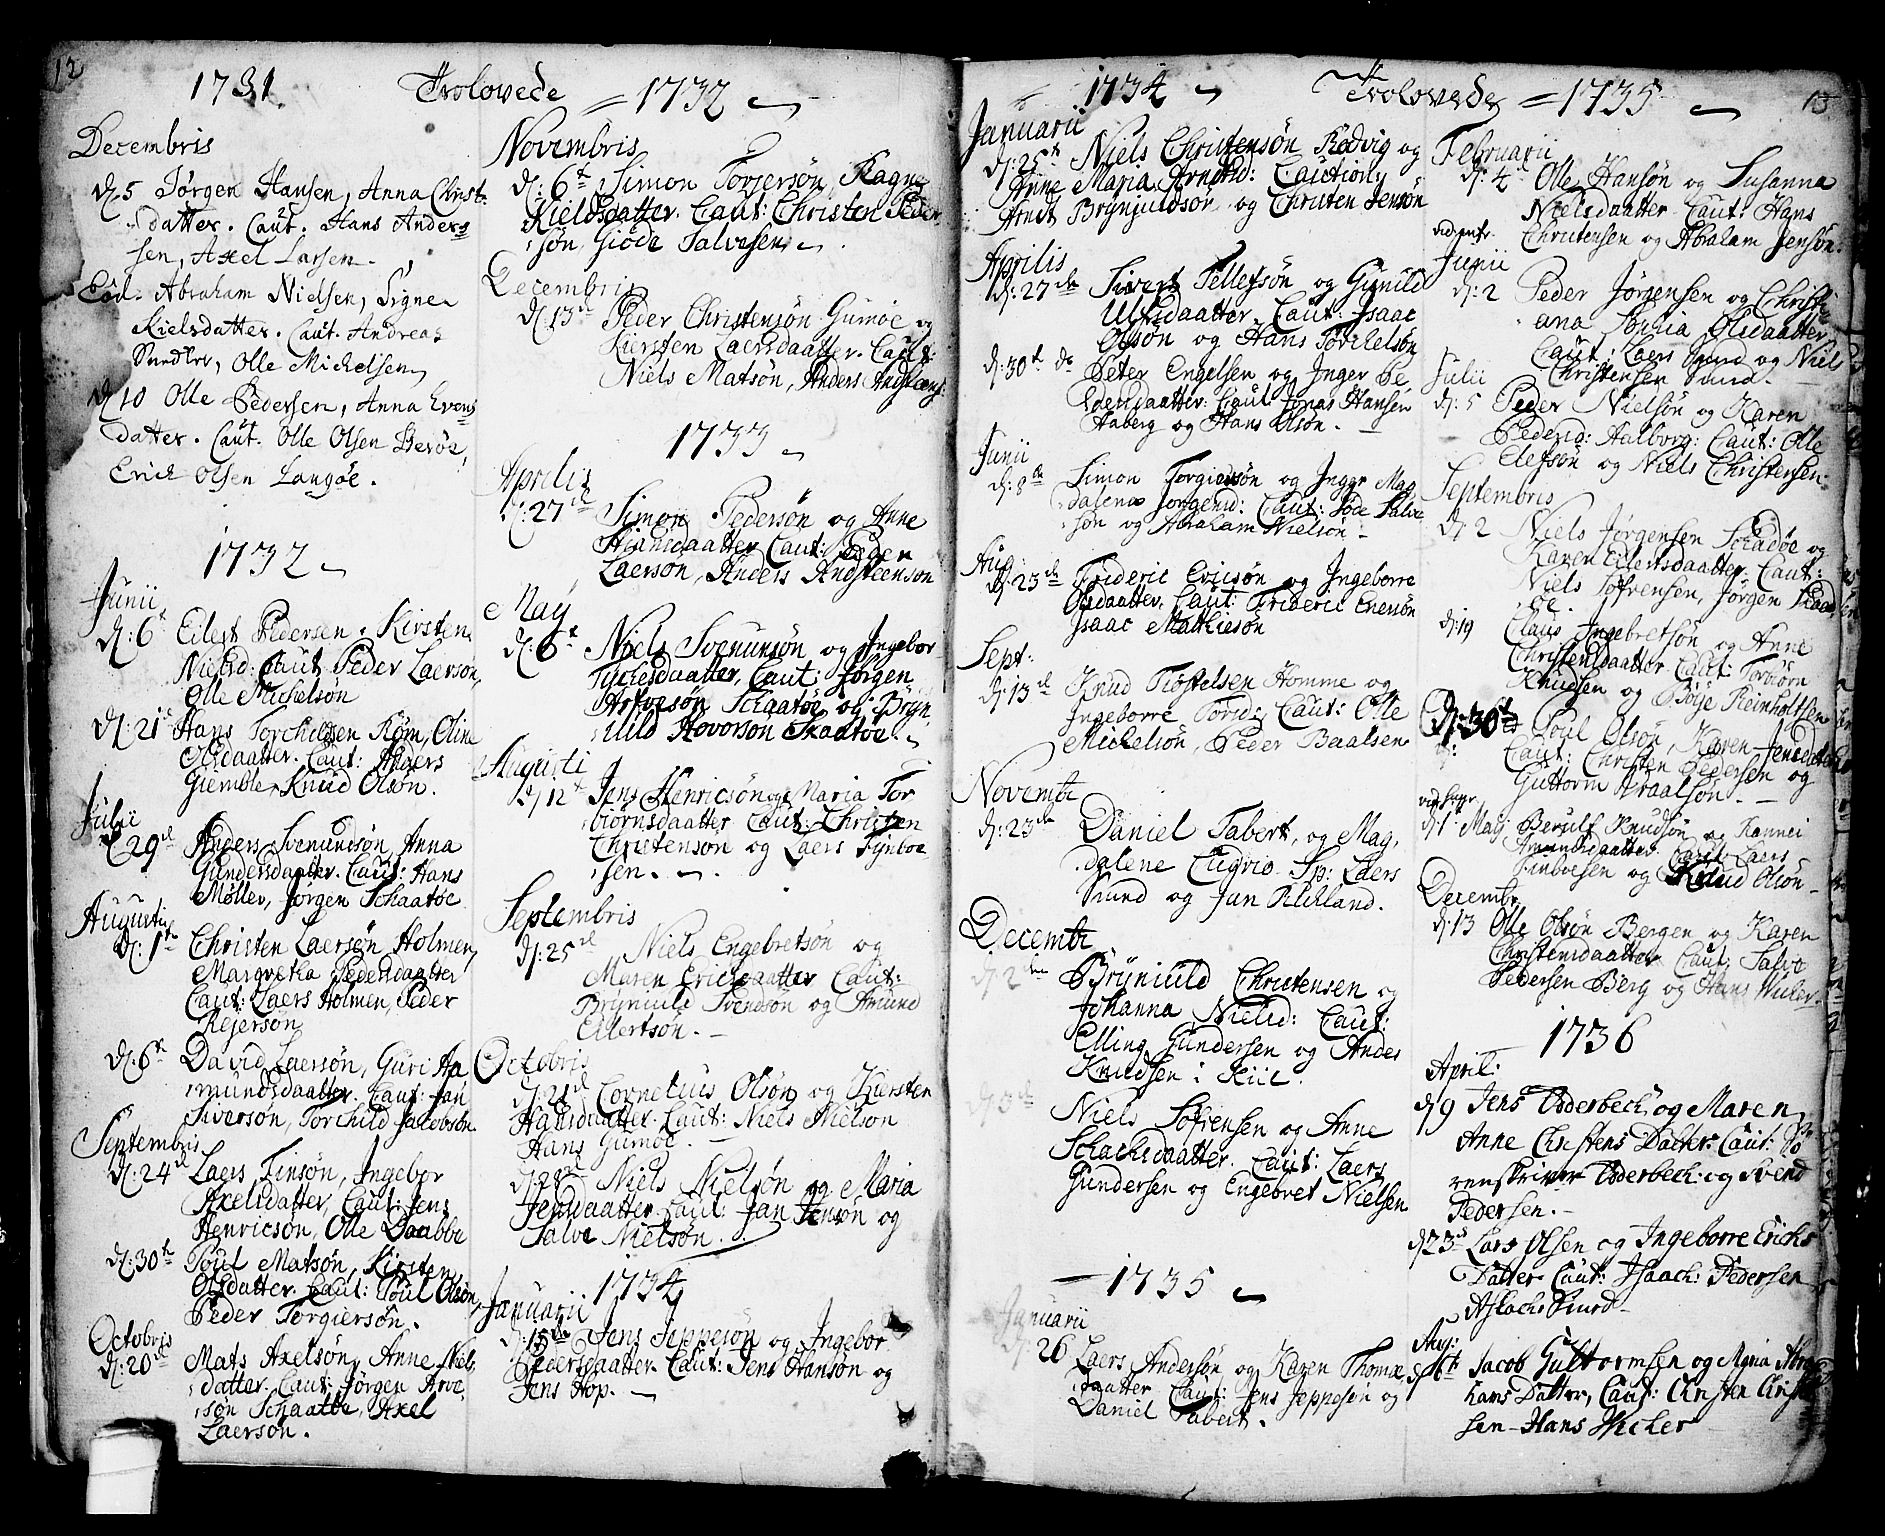 12
1731 Trolovede
Decembris
dj 5 Jørgen Hansen, Anna Christ-
datter. Caut. Hans Anders
sen, Axel Larsen.
Eod. Abraham Nielsen, Signe
Kielsdatter. Caut. Andreas
Olle Michelsen
dj 10 Olle Pedersen, Anna Evens
datter. Caut. Olle Olsen Berøe,
Erich Olsen Langøe.
1732
Junii
dj: 6t Eilert Pedersen, Kirsten
Nielsd: Caut Peder Laersøn,
Olle Michelsøn
dj: 21 Hans Torchildsen Røm, Oline
Olsdaatter. Caut: Aagers
Giemble, Knud Olsøn.
Julii
dj 29 Anders Svenundsøn, Anna
Gundersdaatter. Caut: Hans
Møller, Jørgen Schaatøe
Augusti
dj: 1te Christen Laersøn Holmen,
Margretha Pedersdaatter
Caut: Laers Holmen, Peder
Rejersøn
dj: 6t David Laersøn, Guri Aa
mundsdaatter. Caut: Jan
Siversøn, Torchild Jacobsøn
Septembris
dj: 24 Laers Finsøn, Ingebor
Axelsdatter, Caut: Jens
Henricsøn, Olle Daabbe
dj: 30te Poul Matsøn, Kirsten
Olsdatter. Caut: Poul Olsøn,
Peder Torgiersøn.
Octobris
dj: 20 Mats Axelsøn, Anne Niels
datter. Caut: Jørgen Arve
søn Schaatøe, Axel
Laersøn.
1732
Novembris
dj: 6t Simon Torjersøn, Ragne
Kieldsdatter. Caut: Christen Peder
søn, Giøde Salvesen.
Decembris
dj 13 Peder Christensøn Gumøe og
Kiersten Laersdaatter. Caut:
Niels Matsøn, Anders Andstens:
1733
Aprilis
dj: 27 Simon Pedersøn og Anne
Hansdaatter Caut: Peder
Laersøn, Anders Andsteensøn
Maij
dj: 6t Niels Svenunsøn og Ingebor
Tychesdaatter, Caut: Jørgen
Arfvesøn Schaatøe og Bryn
uld Hovorsøn Skaatøe.
Augusti
dj 12t Jens Henricsøn og Maria Tor
biørnsdaatter Caut: Christen
Christensøn og Laers Finboe
sen.
Septembris
dj: 25 Niels Engebretsøn og
Maren Ericsdaatter Caut:
Brynjuld Svendsøn og Amund
Eilertsøn.
Octobris
dj: 21 Cornelius Olsøn og Kiersten
Hansdaatter. Caut: Niels Nielsøn
Hans Gumøe.
dj: 28 Niels Nielsøn og Maria
Jensdaatter. Caut: Jan Jensøn og
Salve Nielsøn.
1734
Januarii
dj: 15de Jens Jeppesøn og Ingebor
Pedersdaatter. Caut: Jens Hansøn og
Jens Hop.
1734 Trolovede
Januarii
dj: 25t Niels Christensøn Rødvig og
Anne Maria Arndtsd: Cautions
Arndt Brynjuldsøn og Christen Jensøn
Aprilis
dj: 27de Sivert Tellefsøn og Gunild
Ulfsdaatter. Caut: Isaac
Olsøn og Hans Torchelsøn
dj: 30t do Peter Engelsen og Inger Pe
dersdaatter: Caut Jonas Hansen
Haberg og Hans Olsøn.
Junii
dj: 8de Simon Torgiersøn og Inger Mag
dalena Jørgensd: Caut: Jode Salve
søn og Abraham Nielsøn.
Aug:
dj: 23de Frideric Ericsøn og Ingeborre
Olsdaatter. Caut: Frideric Enersøn
Isaac Mathiesøn
Sept:
dj: 13de Knud Trostelsen Homme og
Ingeborre Torsd: Caut: Olle
Michelsøn, Peder Baalsen
Novembr
dj: 23de Daniel Tabert, og Mag
dalene Ludvig. Sp: Laers
Smund og Jan Kirkland.
Decembr
dj 2den Brynjuld Christensen og
Johanna Nielsd: Caut:
Elling Gundersen og Andes
Knudsen i Kiil.
dj 3de Niels Søfrensen og Anne
Schachsdaatter. Caut: Laers
Gundersen og Engebret Nielsen
1735
Januarii
dj 26 Laers Andersøn og Karen Thomæ
daatter Caut: Jens Jeppesen og
Daniel Tabert.
1735 13
Februarii
dj: 4 Olle Hansøn og Susanna
Nielsdaatter. Caut: Hans
Christensen og Abraham Jensøn.
Junii
dj: 2 Peder Jørgensen og Christi
ana Sophia Olsdaatter,
Caut: Laers Smund og Niels
Christensen Smud.
Julii
dj: 5 Peder Nielsøn og Karen
Pedersd: Aalborg: Caut: Olle
Elefsøn og Niels Christensen.
Septembris
dj 2 Niels Jørgensen Schadøe og
Karen Eilertsdaatter. Caut:
Niels Søfrensen, Jørgen Skaad
øe.
dj: 19 Claus Ingebretsøn og Anne
Christensdaatter Caut: Torbiørn
Knudsen og Børje Reinholtsen
dj: 30te Poul Olsøn, Karen Jensdatter
Caut: Christen Pedersen og
Guttorm Araalsøn.
dj 1 Maij Berulf Knudsøn og Rannei
Amundsdaatter. Caut: Laers
Finboesen og Knud Olsøn
Decembr
dj: 13 Olle Olsøn Bergen og Karen
Christensdaatter Caut: Salve
Pedersen Berg og Hans Wicher.
1736
April:
dj 9 Jens Udderbeck og Maren
Anne Christens Datter: Caut: So
renskriver Udderbeck: og Svend
Pedersen.
dj 23 Lars Olsen og Ingeborre Erichs
Datter Caut: Isaach: Pedersen
Aslach Smud
Aug:
dj 6te Jacob Guttormsen og Maria Abra
hams Datter, Caut: Christen Christ
sen Hans Wicher